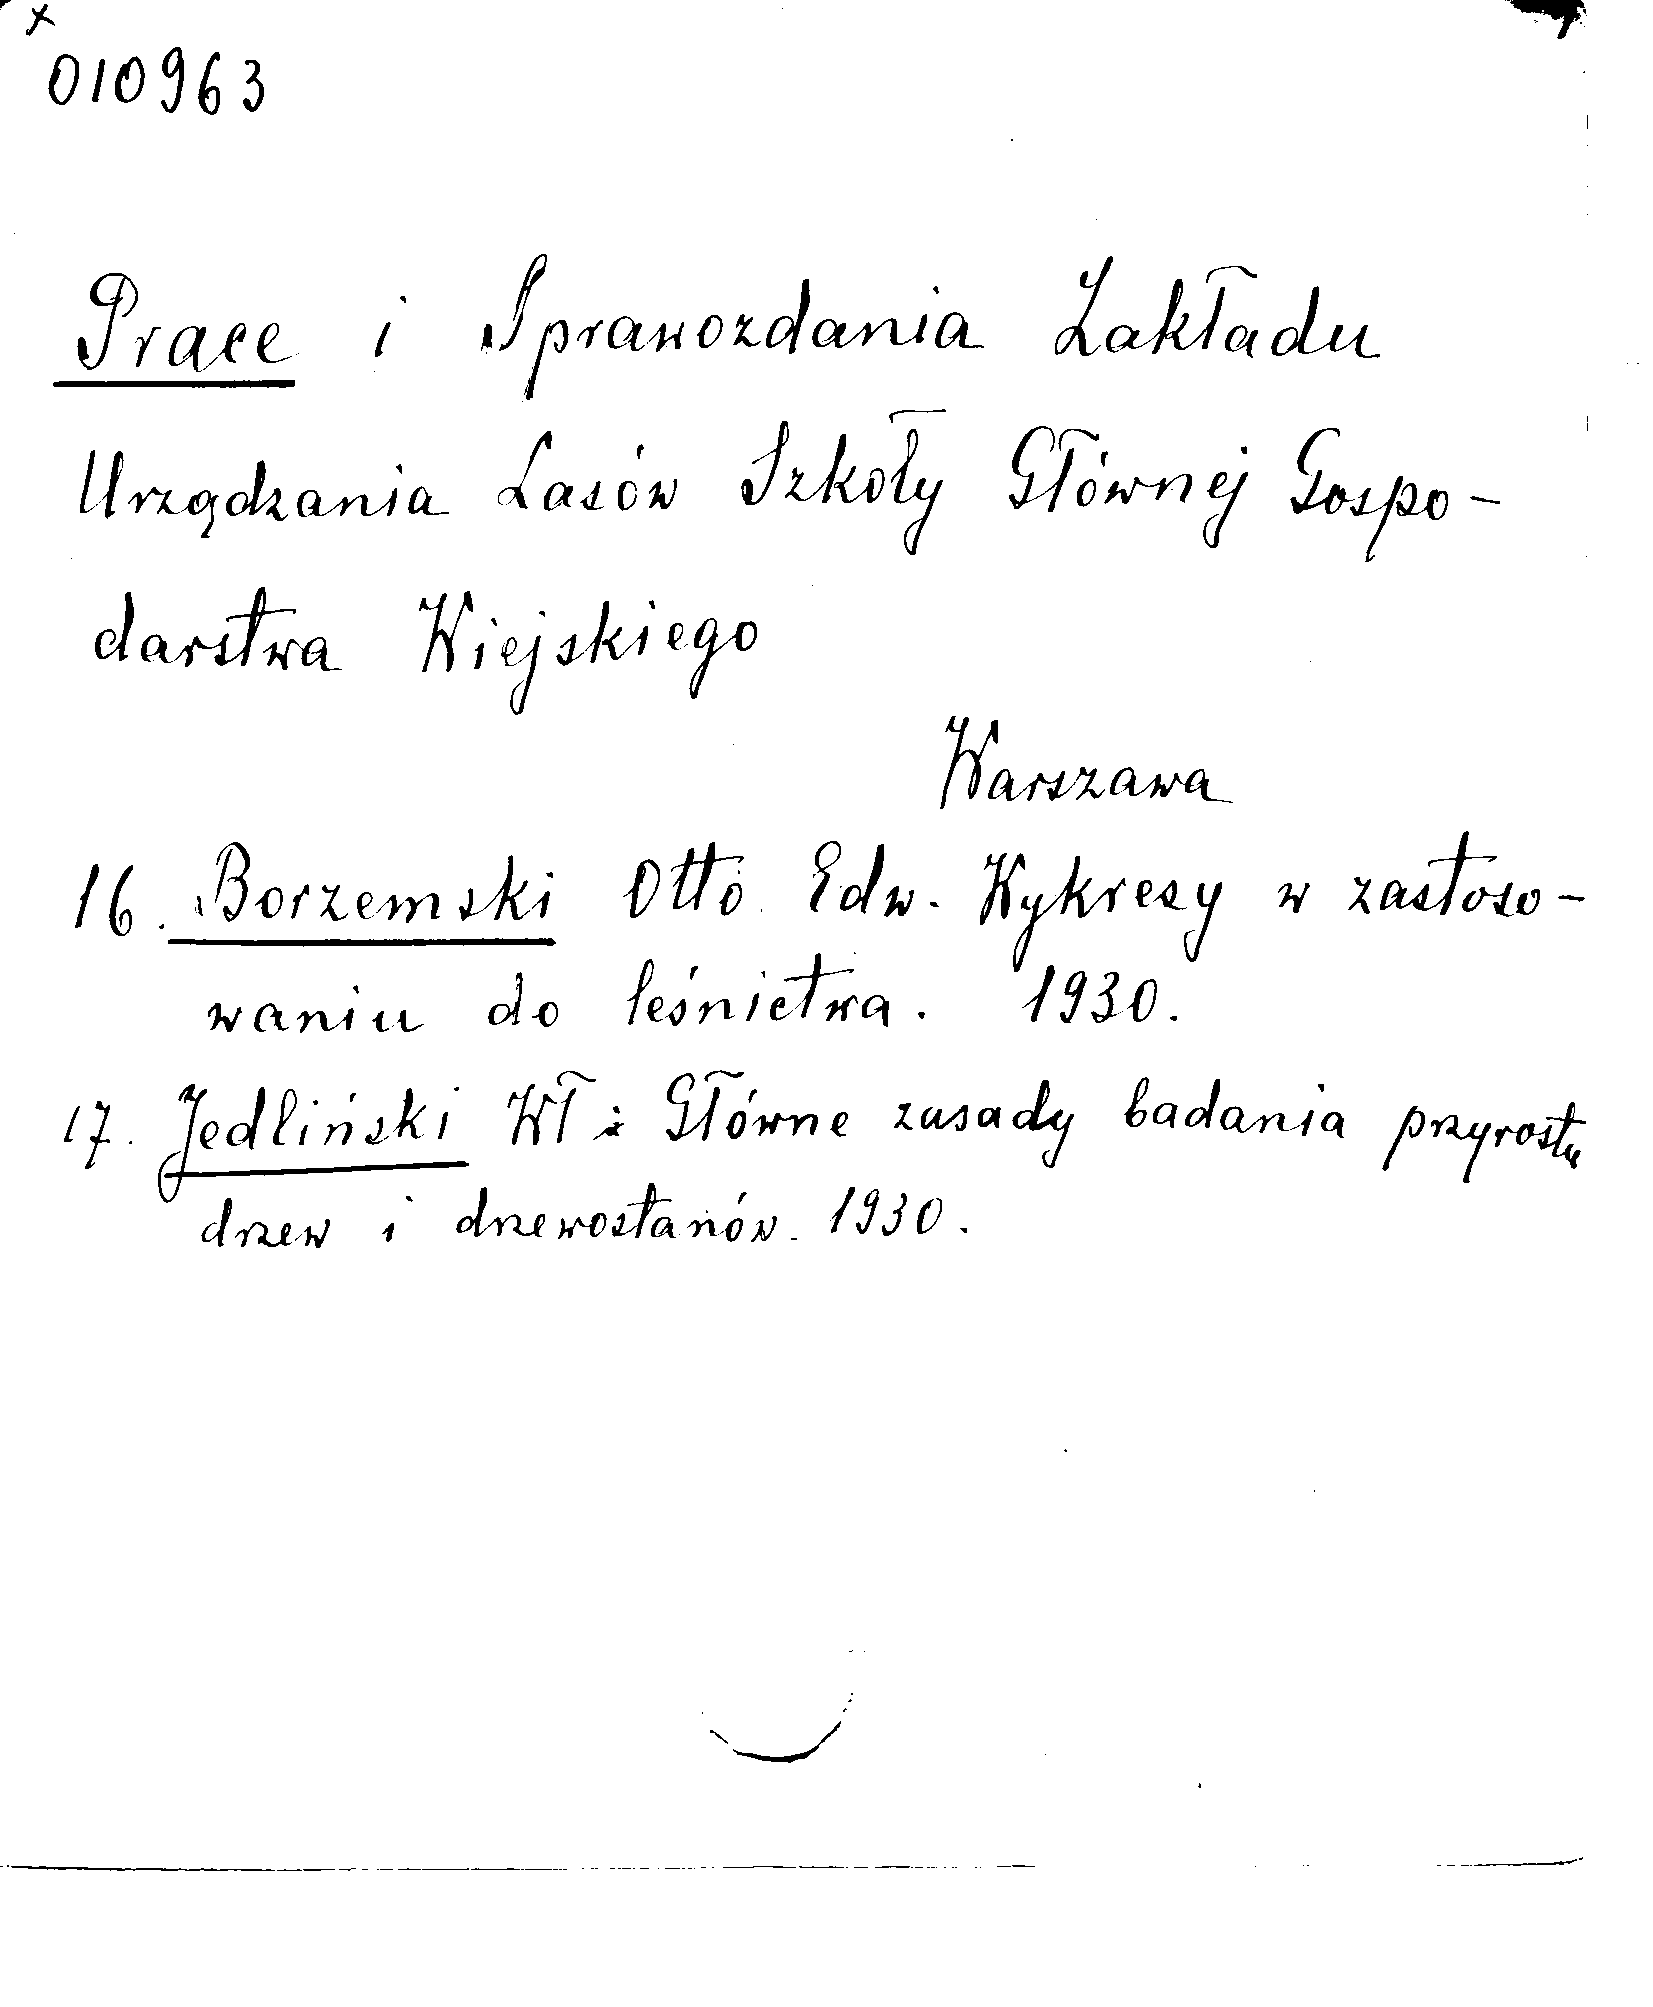 x
010963
Prace i Sprawozdania Zakładu
Urządzania Lasów Szkoły Głównej Gospo-
darstwa Wiejskiego
Warszawa
16. Borzemski Otto Edw. Wykresy w zastoso-
waniu do leśnictwa. 1930.
17. Jedliński Wł: Główne zasady badania przyrostu
drzew i drzewostanów. 1930.